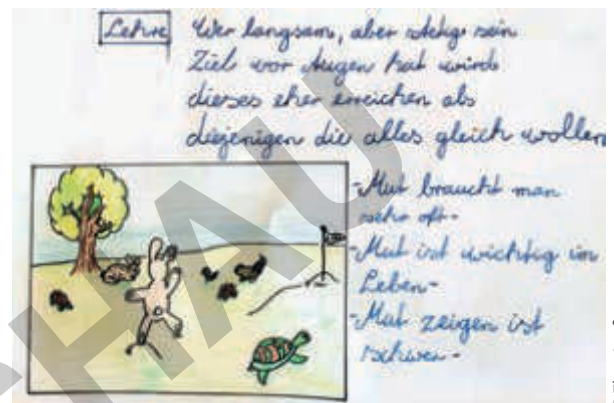 Lehre Wer langsam, aber stetig sein
Ziel vor Augen hat wird
dieses eher erreichen als
diejenigen die alles gleich wollen
-Mut braucht man
sehr oft-
-Mut ist wichtig im
Leben-
-Mut zeigen ist
schwer-